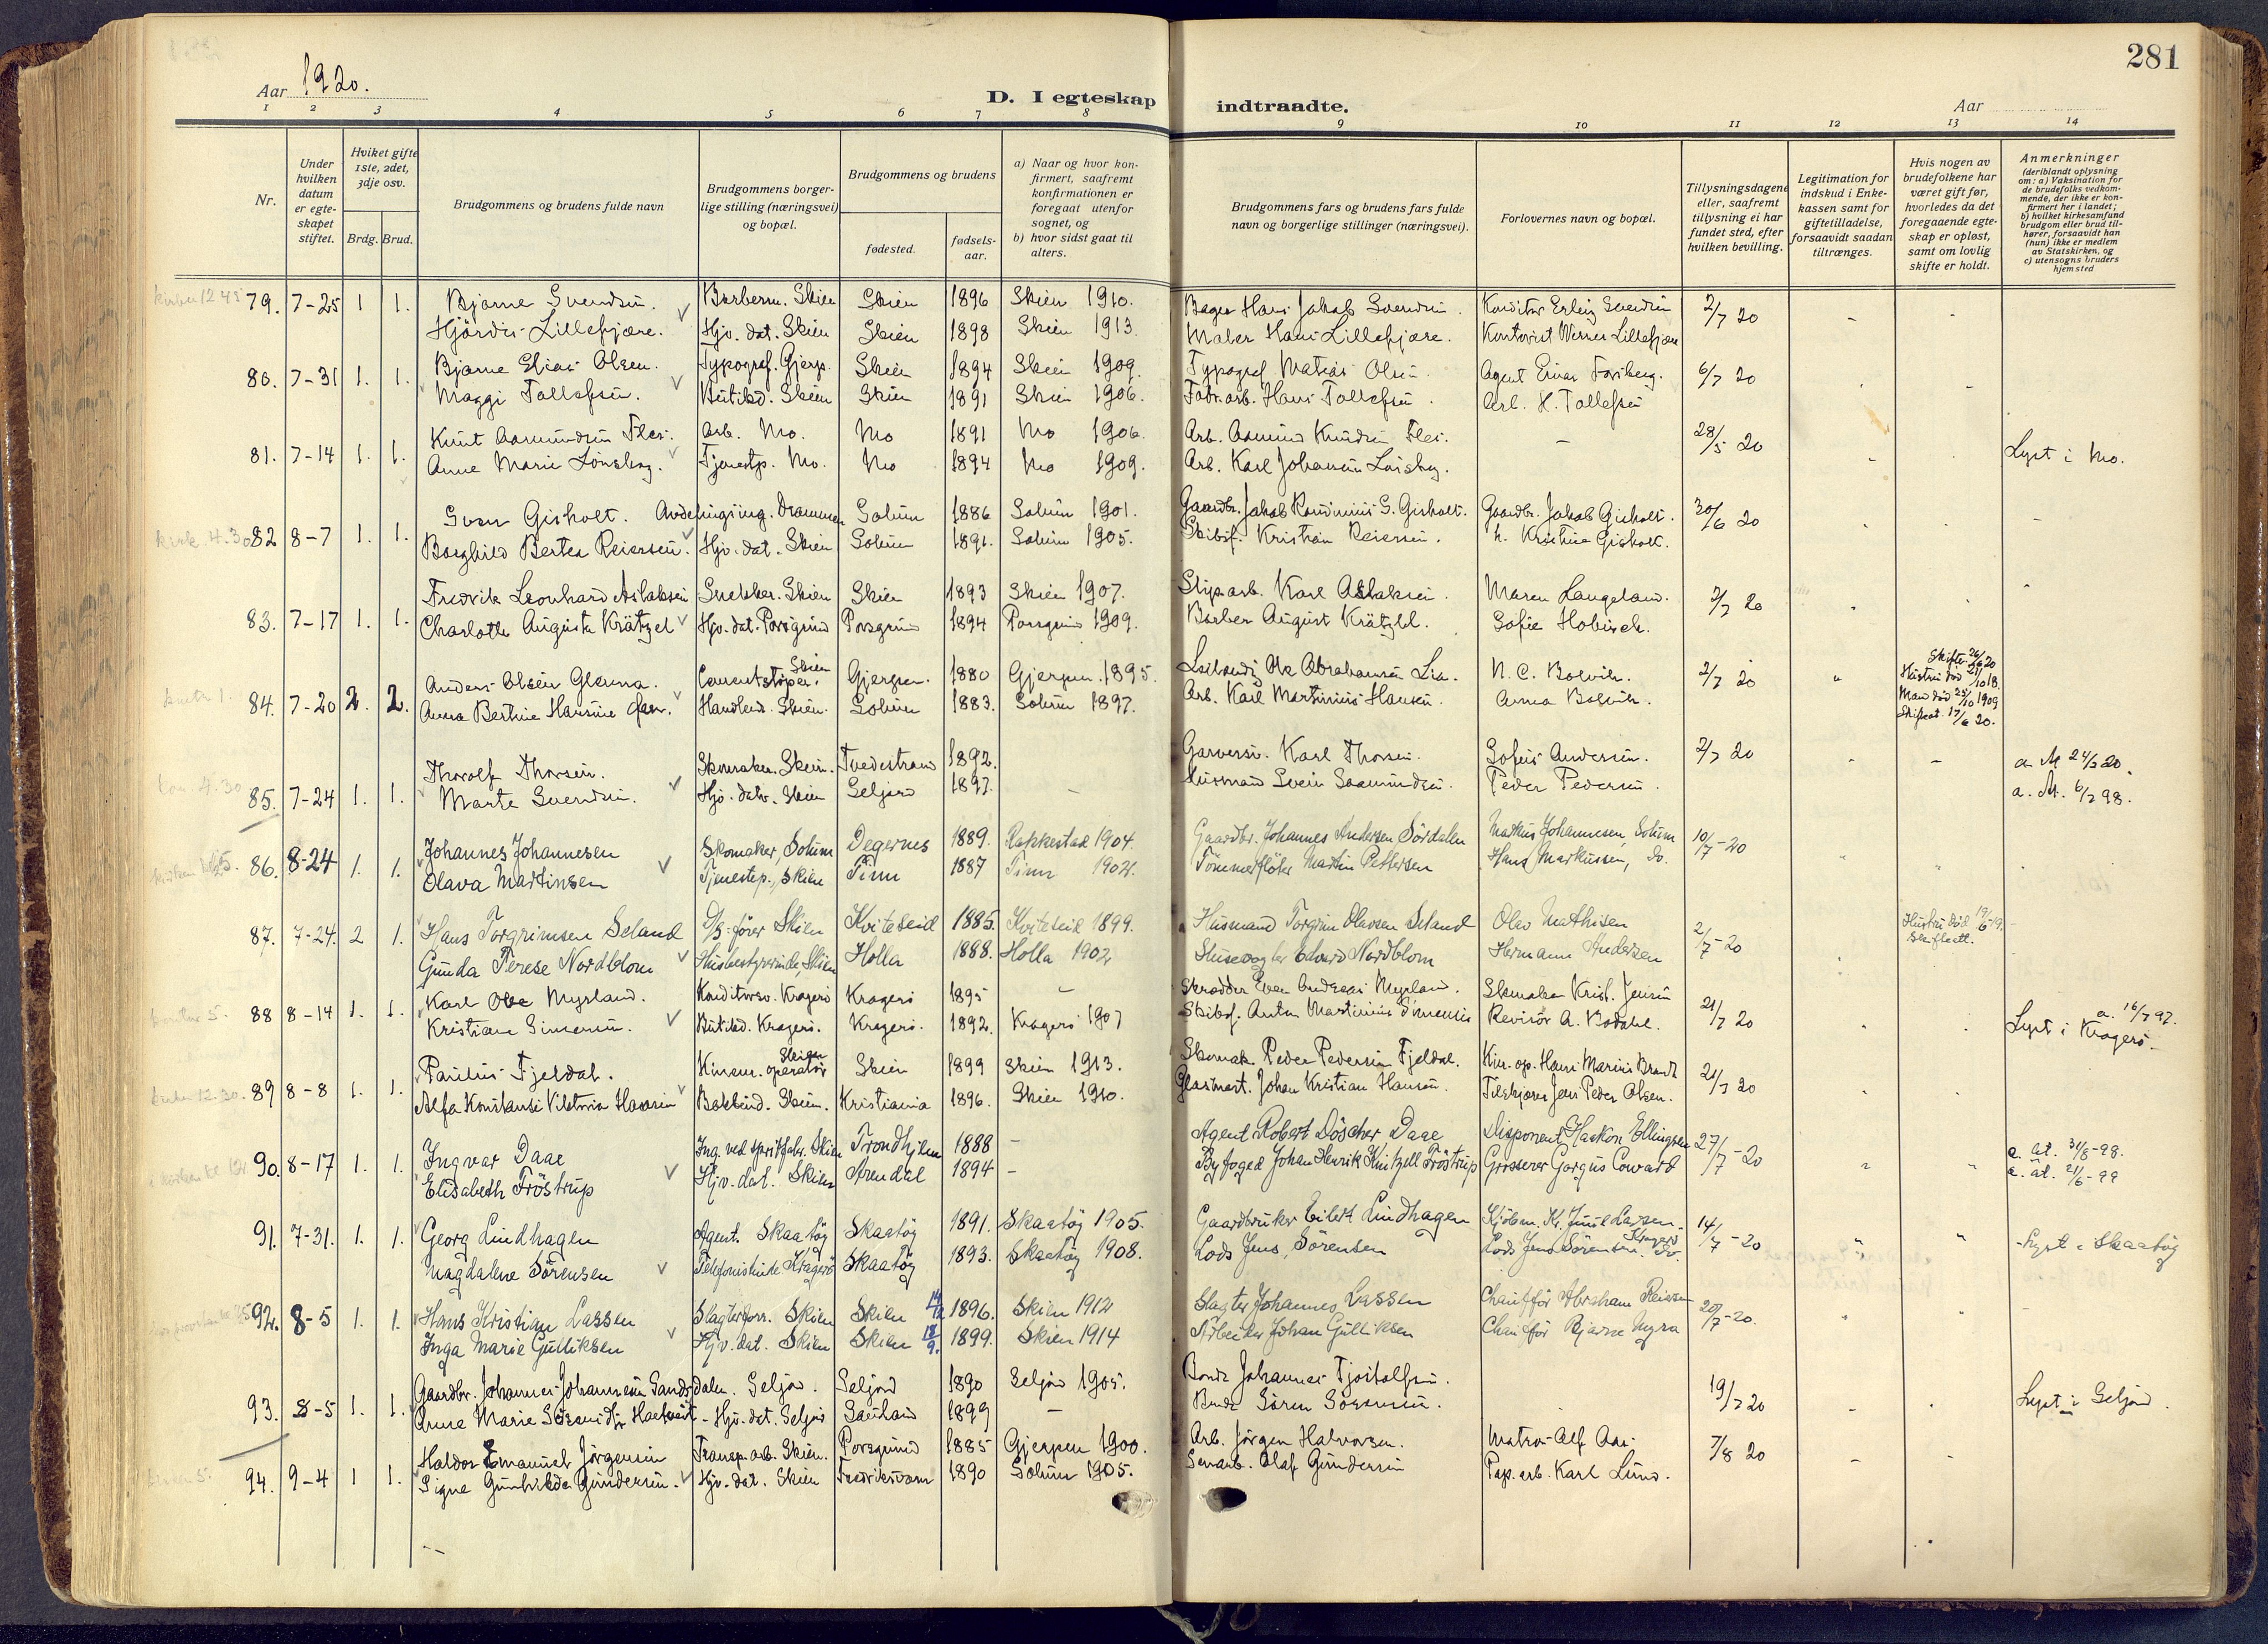 281
Aar 1920.
D. I egteskap indtraadte.
Aar
1 2 3 4 5 6 7 8 9 10 11 12 13 14
Nr.
Under hvilken datum er egteskapet stiftet.
Hviket gifte 1ste, 2det, 3dje osv.
Brdg. Brud.
Brudgommens og brudens fulde navn
Brudgommens borgerlige stilling (næringsvei) og bopæl.
Brudgommens og brudens
fødested.
fødselsaar.
a) Naar og hvor konfirmert, saafremt konfirmationen er foregaat utenfor sognet, og
b) hvor sidst gaat til alters.
Brudgommens fars og brudens fars fulde navn og borgerlige stillinger (næringsvei).
Forlovernes navn og bopæl.
Tillysningsdagene eller, saafremt tillysning ei har fundet sted, efter hvilken bevilling.
Legitimation for indskud i Enkekassen samt for giftetilladelse, forsaavidt saadan tiltrænges.
Hvis nogen av brudefolkene har været gift før, hvorledes da det foregaaende egteskap er opløst, samt om lovlig skifte er holdt.
Anmerkninger (deriblandt oplysning om: a) Vaksination for de brudefolks vedkommende, der ikke er konfirmert her i landet; b) hvilket kirkesamfund brudgom eller brud tilhører, forsaavidt han (hun) ikke er medlem av Statskirken, og c) utensogns bruders hjemsted
79. 7-25 1 1. Bjarne Svendsen. Barberm. Skien Skien 1896 Skien 1910. Bager Hans Jakob Svendsen. Konditor Erling Svendsen 2/7 20
Hjördis Lillefjære. Hjv. dat. Skien Skien 1898 Skien 1913. Maler Hans Lillefjære. Kontorist Werner Lillefjære
80. 7-31 1. 1. Bjarne Elias Olsen. Typograf. Gjerp. Skien 1894 Skien 1909. Typograf Matias Olsen. Agent Einar Forsberg. 6/7 20
Maggi Tollefsen. Butikd. Skien Skien 1891 Skien 1906. Fabr.arb. Hans Tollefsen. Arb. H. Tollefsen
81. 7-14 1. 1. Knut Aamundsen Fles. Arb. Mo. Mo 1891 Mo 1906. Arb. Aamund Knudsen Fles. - 28/5 20
Anne Marie Lönsberg. Tjenestp. Mo. Mo 1894 Mo 1909. Arb. Karl Johansen Lönsberg. Lyst i Mo.
82 8-7 1. 1. Sven Gisholt. Avdelingsing. Drammen Solum 1886 Solum 1901. Gaardbr. Jakob G. Gisholt. Gaardbr. Jakob Gisholt. 30/6 20
Borghild Bertea Reiersen. Hjv. dat. Skien Solum 1891. Solum 1905. Skibsf. Kristian Reiersen. h. Kristine Gisholt.
83. 7-17 1. 1. Fredrik Leonhard Aslaksen Snekker. Skien Skien 1893 Skien 1907. Slip.arb. Karl Aslaksen. Maren Langeland. 2/7 20
Charlotte Augusta Krätzel Hjv. dat. Porsgrund Porsgrund 1894 Porsgrund 1909. Barber August Krätzel. Sofie Hobisch.
84. 7-20 2. 2. Anders Olsen Glenna. Cementstøper. Skien Gjerpen. 1880 Gjerpen. 1895. Ole Abrahamsen Lia. N. C. Bolvik. 2/7 20 Skifte 26/6 20 Hustru død 21/10 18.
Anna Bertine Hansine Handlend. Skien. Solum 1883. Solum 1897. Arb. Karl Martinius Hansen. Anna Bolvik. Mand død 25/10 1909 Skifteat. 17/6 20.
85. 7-24 1. 1. Thorolf Thorsen. Skomaker. Skien. Tvedestrand 1892. Garversv. Karl Thorsen. Sofus Andersen. 2/7 20 - - a. At. 24/3 20.
Marte Svendsen. Hjv. datr. Skien Seljord 1897. - Husmand Svein Saamundsen. Peder Pedersen. a. At. 6/7 98.
86. 8-24 1. 1. Johannes Johannesen Skomaker, Solum Degernes 1889. Rakkestad 1904. Gaardbr. Johannes Andersen Sördalen Markus Johannesen, Solum 10/7-20
Olava Martinsen Tjenestep., Skien Tinn 1887 Tinn 1902. Tömmerfløter Martin Pettersen Hans Markussen, do.
87. 7-24. 2 1. Hans Torgrimsen Seland D/S: förer Skien Kviteseid 1885. Kviteseid 1899. Husmand Torgrim Olavsen Seland Olav Mathisen 2/7-20 Hustru död 19/6-19. Skifteatt.
Gunda Terese Nordblom Husbestyrerinde, Skien Holla 1888. Holla 1902 Edvard Nordblom Hermann Andersen
88 8-14 1. 1. Karl Ove Myrland. Konditorsv. Kragerö Kragerö 1895 - Skrædder Even Andreas Myrland. Skomaker Krist. Jensen 21/7 20 a. 16/7 97.
Kristiane Simonsen. Butikd. Kragerö. Kragerö. 1892. Kragerö 1907 Skibsf. Anton Martinius Simonsen Revisör A. Bodahl. Lyst i Kragerö.
89 8-8 1. 1. Paulus Fjeldal. Kinem. operatör Skien Skien 1899 Skien 1913. Skomak. Peder Pedersen Fjeldal. Kin. op. Hans Marius Brandt 21/7 20
Alfa Konstanse Viktoria Hansen Bokbind. Skien. Kristiania 1896. Skien 1910. Glasmest. Johan Kristian Hansen. Jens Peder Olsen.
90. 8-17 1. 1. Ingvar Daae Ing. ved spritfabr. Skien Trondhjem 1888 - Agent Robert Döscher Daae Disponent Haakon Ellingsen 27/7-20 a. at. 31/8-98.
Elisabeth Fröstrup Hjv. dat. Skien Arendal 1894 - Byfoged Johan Henrik Kintzell Fröstrup Grosserer Gorgus Coward a. at. 21/6-99
91. 7-31. 1. 1. Georg Lindhagen Agent. Skaatöy Skaatöy 1891. Skaatöy 1905. Gaardbruker Eilert Lindhagen Kjöbm. Kr. Juul Larsen. Kragerö 14/7-20
Magdalene Sörensen Telefonistinde Kragerö Skaatöy 1893. Skaatöy 1908. Lods Jens Sörensen Lods Jens Sörensen. do. Lyst i Skaatöy
92. 8-5 1. 1. Hans Kristian Lassen Slagterforr. Skien Skien 1896. Skien 1912 Slagter Johannes Lassen Chaufför Abraham Reiersen 20/7-20.
Inga Marie Gulliksen Hjv. dat. Skien Skien 18/9. 1899. Skien 1914 Arbeider Johan Gulliksen Chaufför Bjarne Myra
93. 8-5 1. 1. Gaardbr. Johannes Johannesen Sandsdalen. Seljord. Seljord 1890 Seljord 1905. Bonde Johannes Tjostolfsen. 19/7 20
Anna Marie Hjv. dat. Seljord Sauland 1899 - Bonde Sören Sörensen. Lyst i Seljord.
94. 9-4 1 1. Haldor Emanuel Jörgensen Transp.arb. Skien. Porsgrund 1885 Gjerpen 1900. Arb. Jörgen Halvorsen. Matros Alf Aas. 7/8 20
Signe Gunhilda Gundersen. Hjv. dat. Skien Fredriksværn 1890 Solum 1905. Olaf Gundersen Pap.arb. Karl Lund.